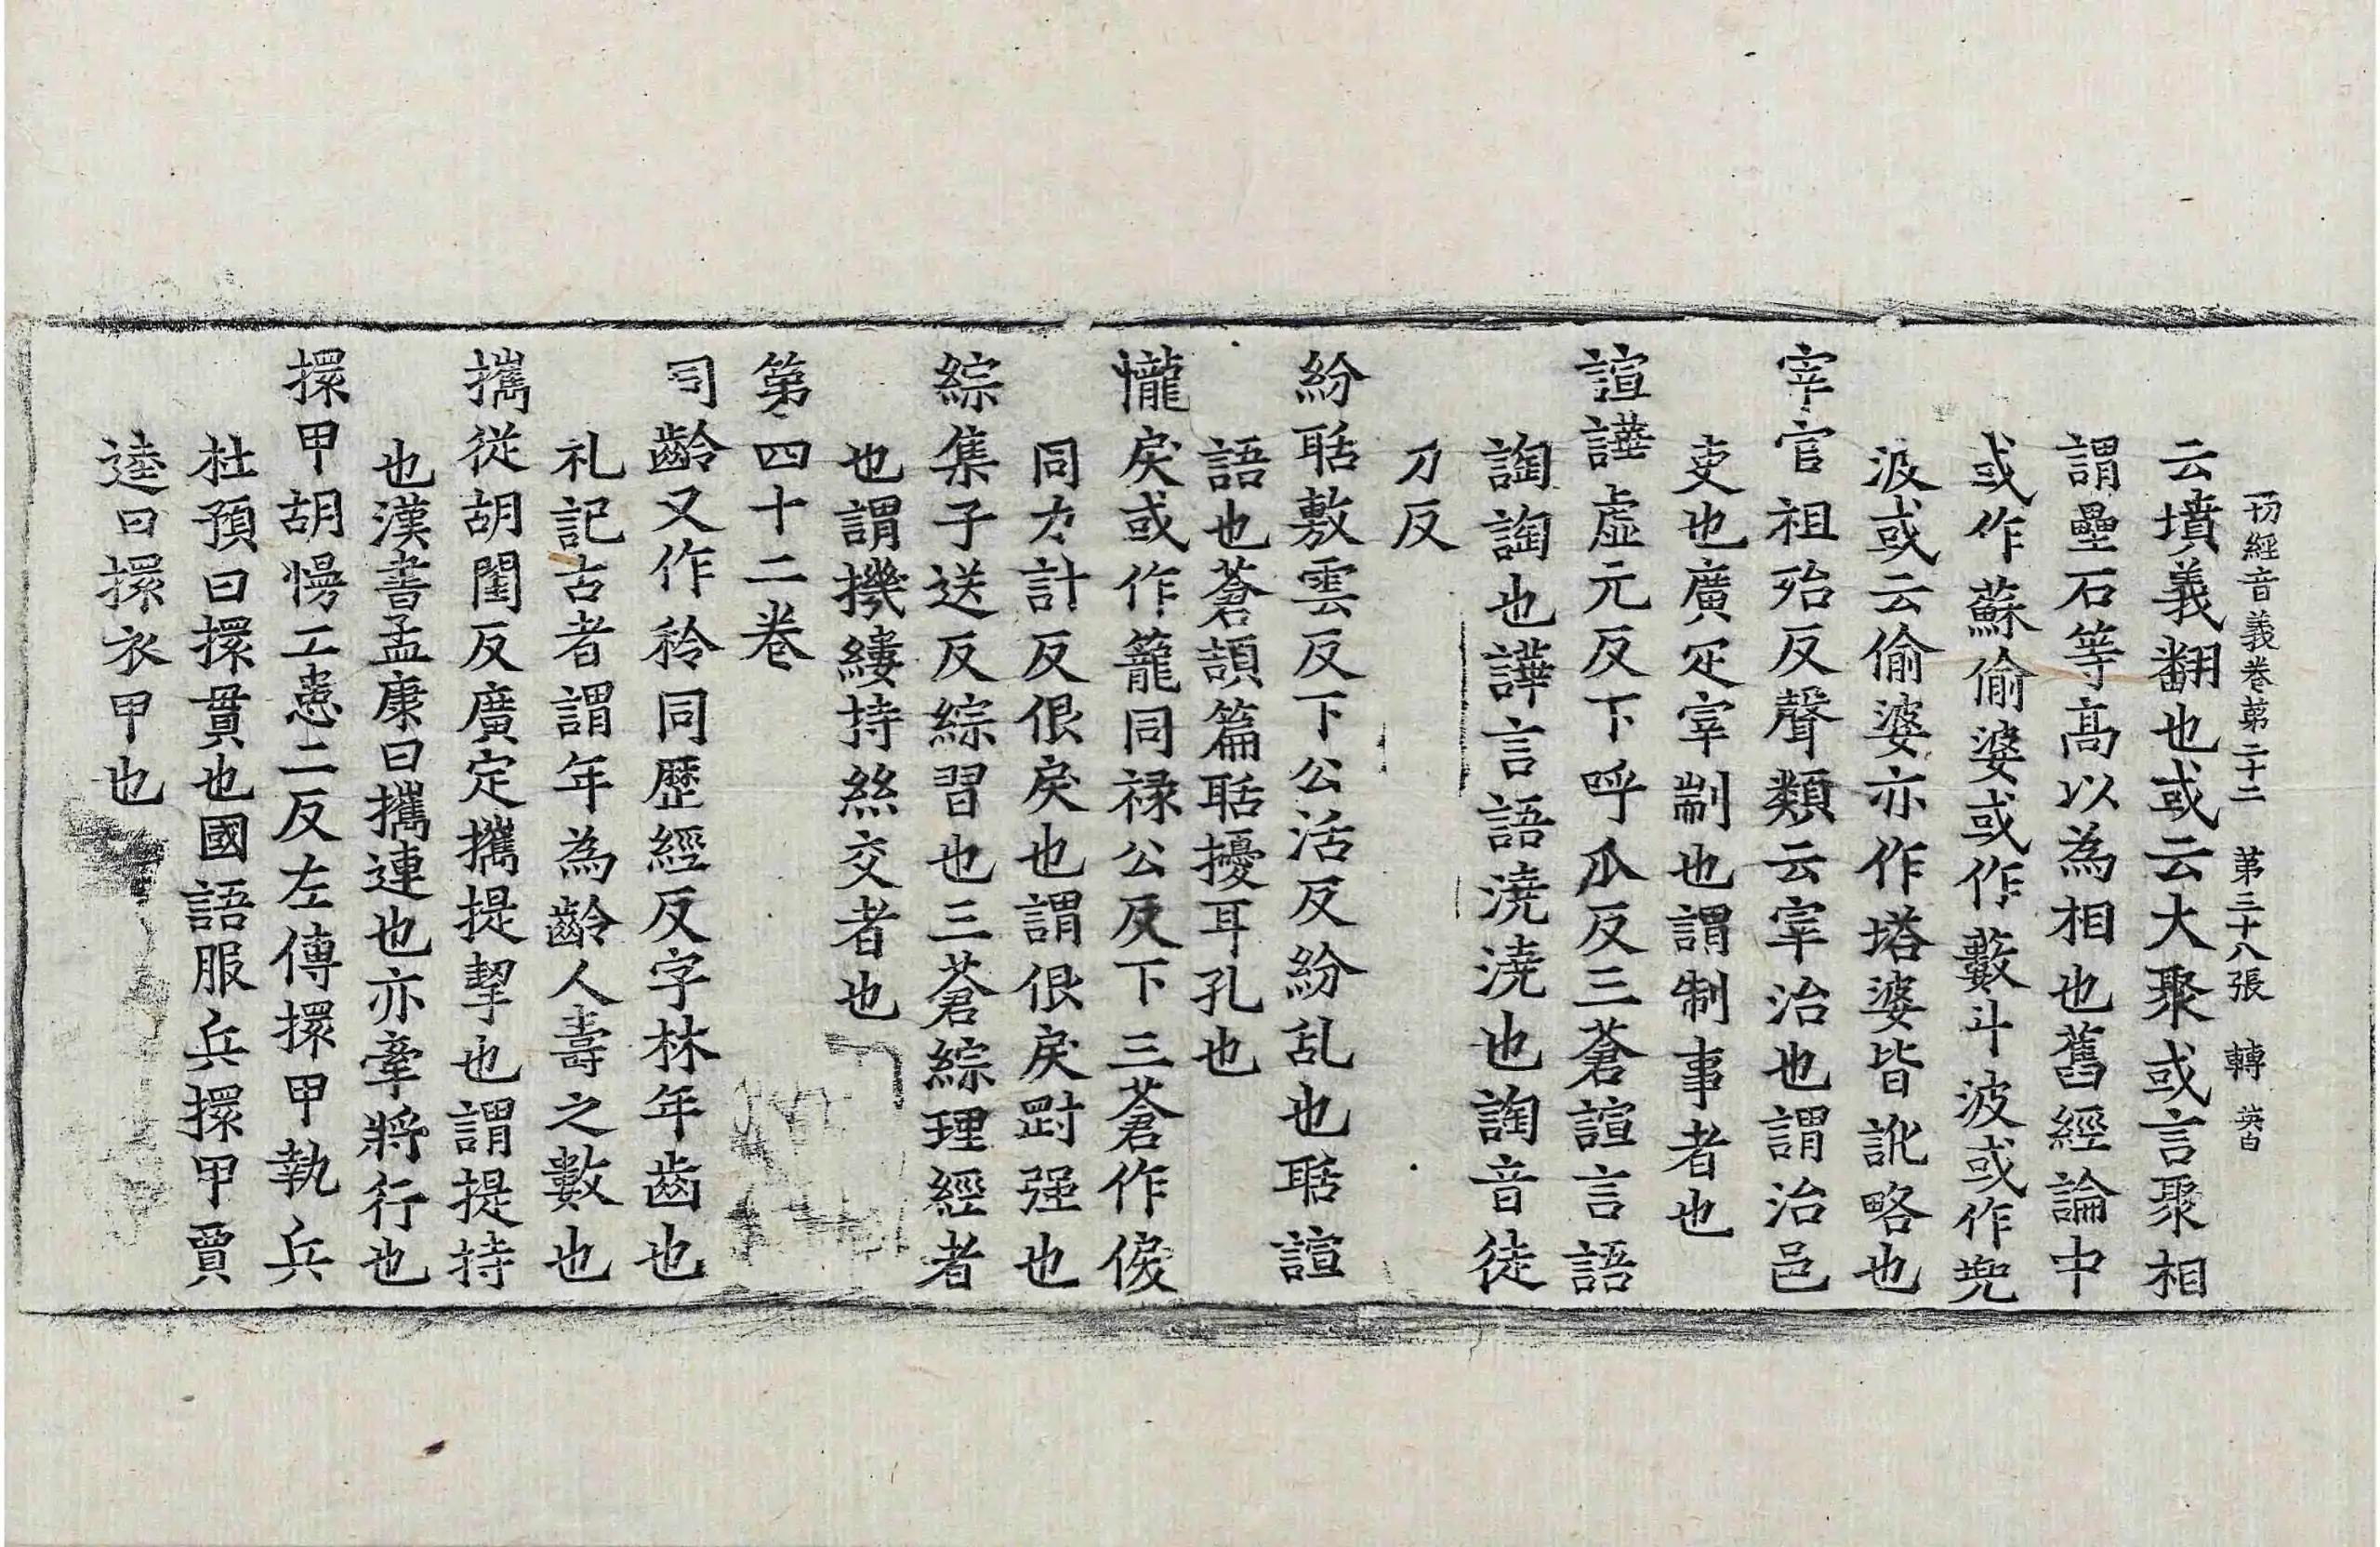 一切經音義卷第二十二 第三十八張 轉 英白
云墳義翻也或云大聚或言聚相
謂壘石等高以為相也舊經論中
或作蘇偷婆或作藪斗波或作兜
波或云偷婆亦作塔婆皆訛略也
宰官祖殆反聲類云宰治也謂治邑
吏也廣疋宰制也謂制事者也
諠譁虛元反下呼瓜反三蒼諠言語
詾詾也譁言語澆澆也詾音徒
刀反
紛聒敷雲反下公活反紛乱也聒諠
語也蒼頡篇聒擾耳孔也
儱戾或作籠同祿公反下三蒼作㑦
同力計反佷戾也謂佷戾㓸强也
綜集子送反綜習也三蒼綜理經者
也謂機縷持絲交者也
第四十二卷
司齡又作秢同歷經反字林年齒也
礼記古者謂年為齡人壽之數也
攜從胡閨反廣定攜提挈也謂提持
也漢書孟康曰攜連也亦牽將行也
擐甲胡慢工患二反左傳擐甲執兵
杜預曰擐貫也國語服兵擐甲賈
逵曰擐衣甲也